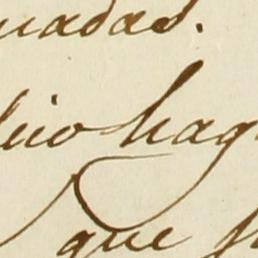 uadas.
licio hag
que